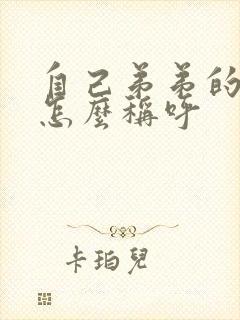 自己弟弟的
怎麼稱呼
卡珀兒